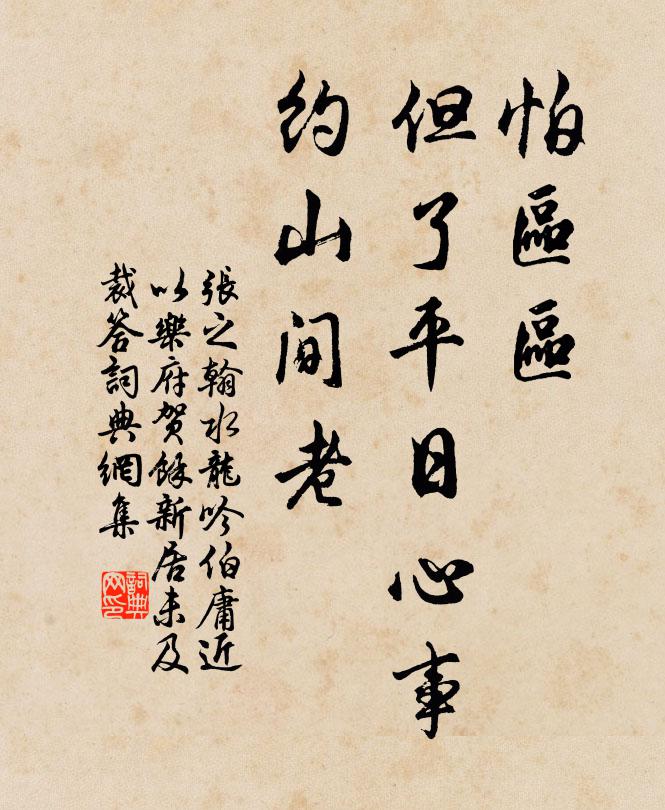 怕區區
但了平日心事
約山間老
張之翰水龍吟伯庸近
以樂府賀餘新居未及
裁答詞典網集
詞典網印